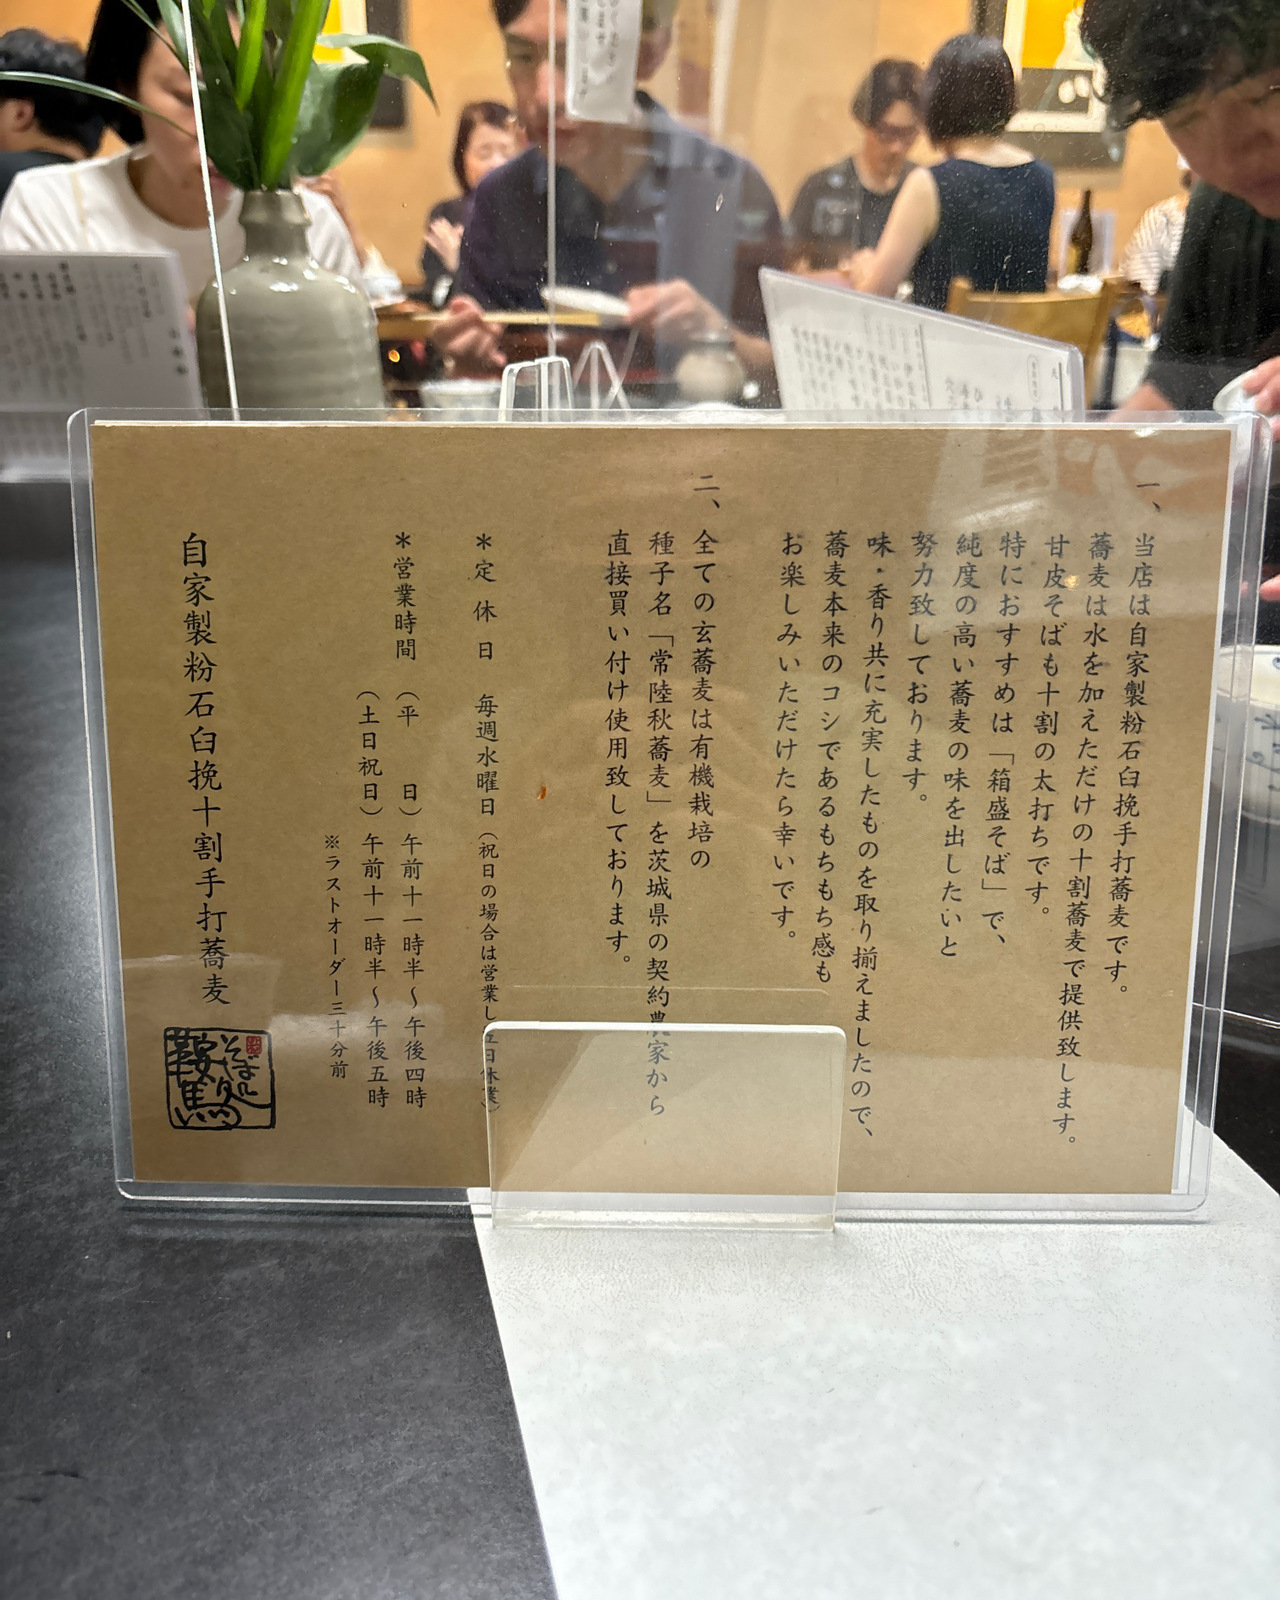 一、当店は自家製粉石臼挽手打蕎麦です。
蕎麦は水を加えただけの十割蕎麦で提供致します。
甘皮そばも十割の太打ちです。
特におすすめは「箱盛そば」で、
純度の高い蕎麦の味を出したいと
努力致しております。
味・香り共に充実したものを取り揃えましたので、
蕎麦本来のコシであるもちもち感も
お楽しみいただけたら幸いです。
二、全ての玄蕎麦は有機栽培の
種子名「常陸秋蕎麦」を茨城県の契約農家から
直接買い付け使用致しております。
＊定休日 毎週水曜日（祝日の場合は営業し翌日休業）
＊営業時間（平日）午前十一時半〜午後四時
（土日祝日）午前十一時半〜午後五時
※ラストオーダー三十分前
自家製粉石臼挽十割手打蕎麦
そば処
鞍馬